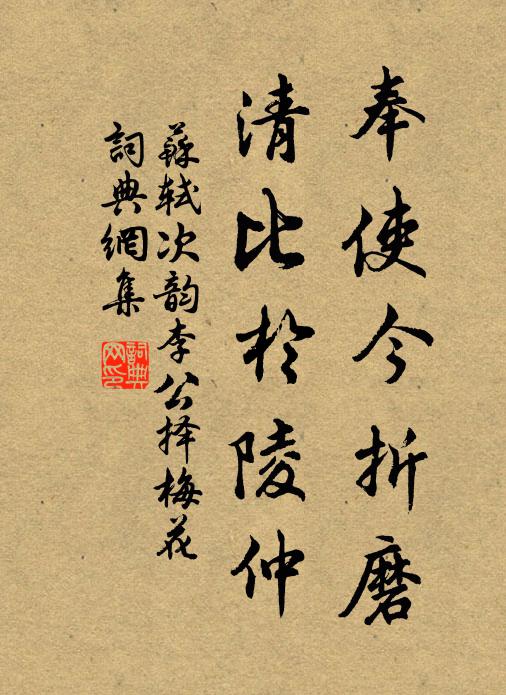 奉使今折磨
清比於陵仲
蘇轼次韵李公择梅花
詞典網集
詞典网印